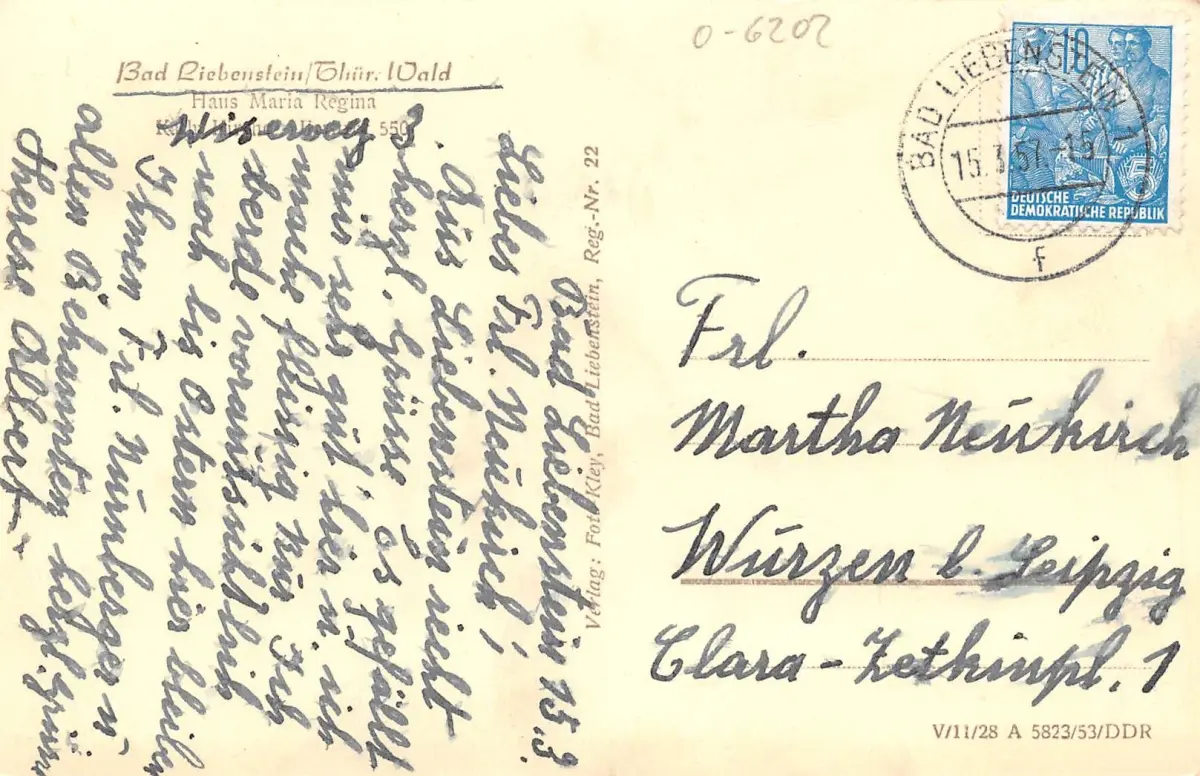 O-6202
Bad Liebenstein/Thür. Wald
Haus Maria Regina
550
Wiserweg 3
Bad Liebenstein 15.3.
Liebes Frl. Neukirch!
Aus Liebenstein recht
herzl. Grüsse. Es gefällt
mir sehr gut hier u. ich
mache fleissig Kur. Ich
werde voraussichtlich
noch bis Ostern hier bleiben
Ihnen, Frl. Nürnberger u.
allen Bekannten herzl. Grüsse
Therese Albert
Verlag: Foto Kley, Bad Liebenstein, Reg.-Nr. 22
BAD LIEBENSTEIN
15.3.57.-15
f
10
DEUTSCHE
DEMOKRATISCHE REPUBLIK
Frl.
Martha Neukirch
Wurzen b. Leipzig
Clara-Zetkinpl. 1
V/11/28 A 5823/53/DDR